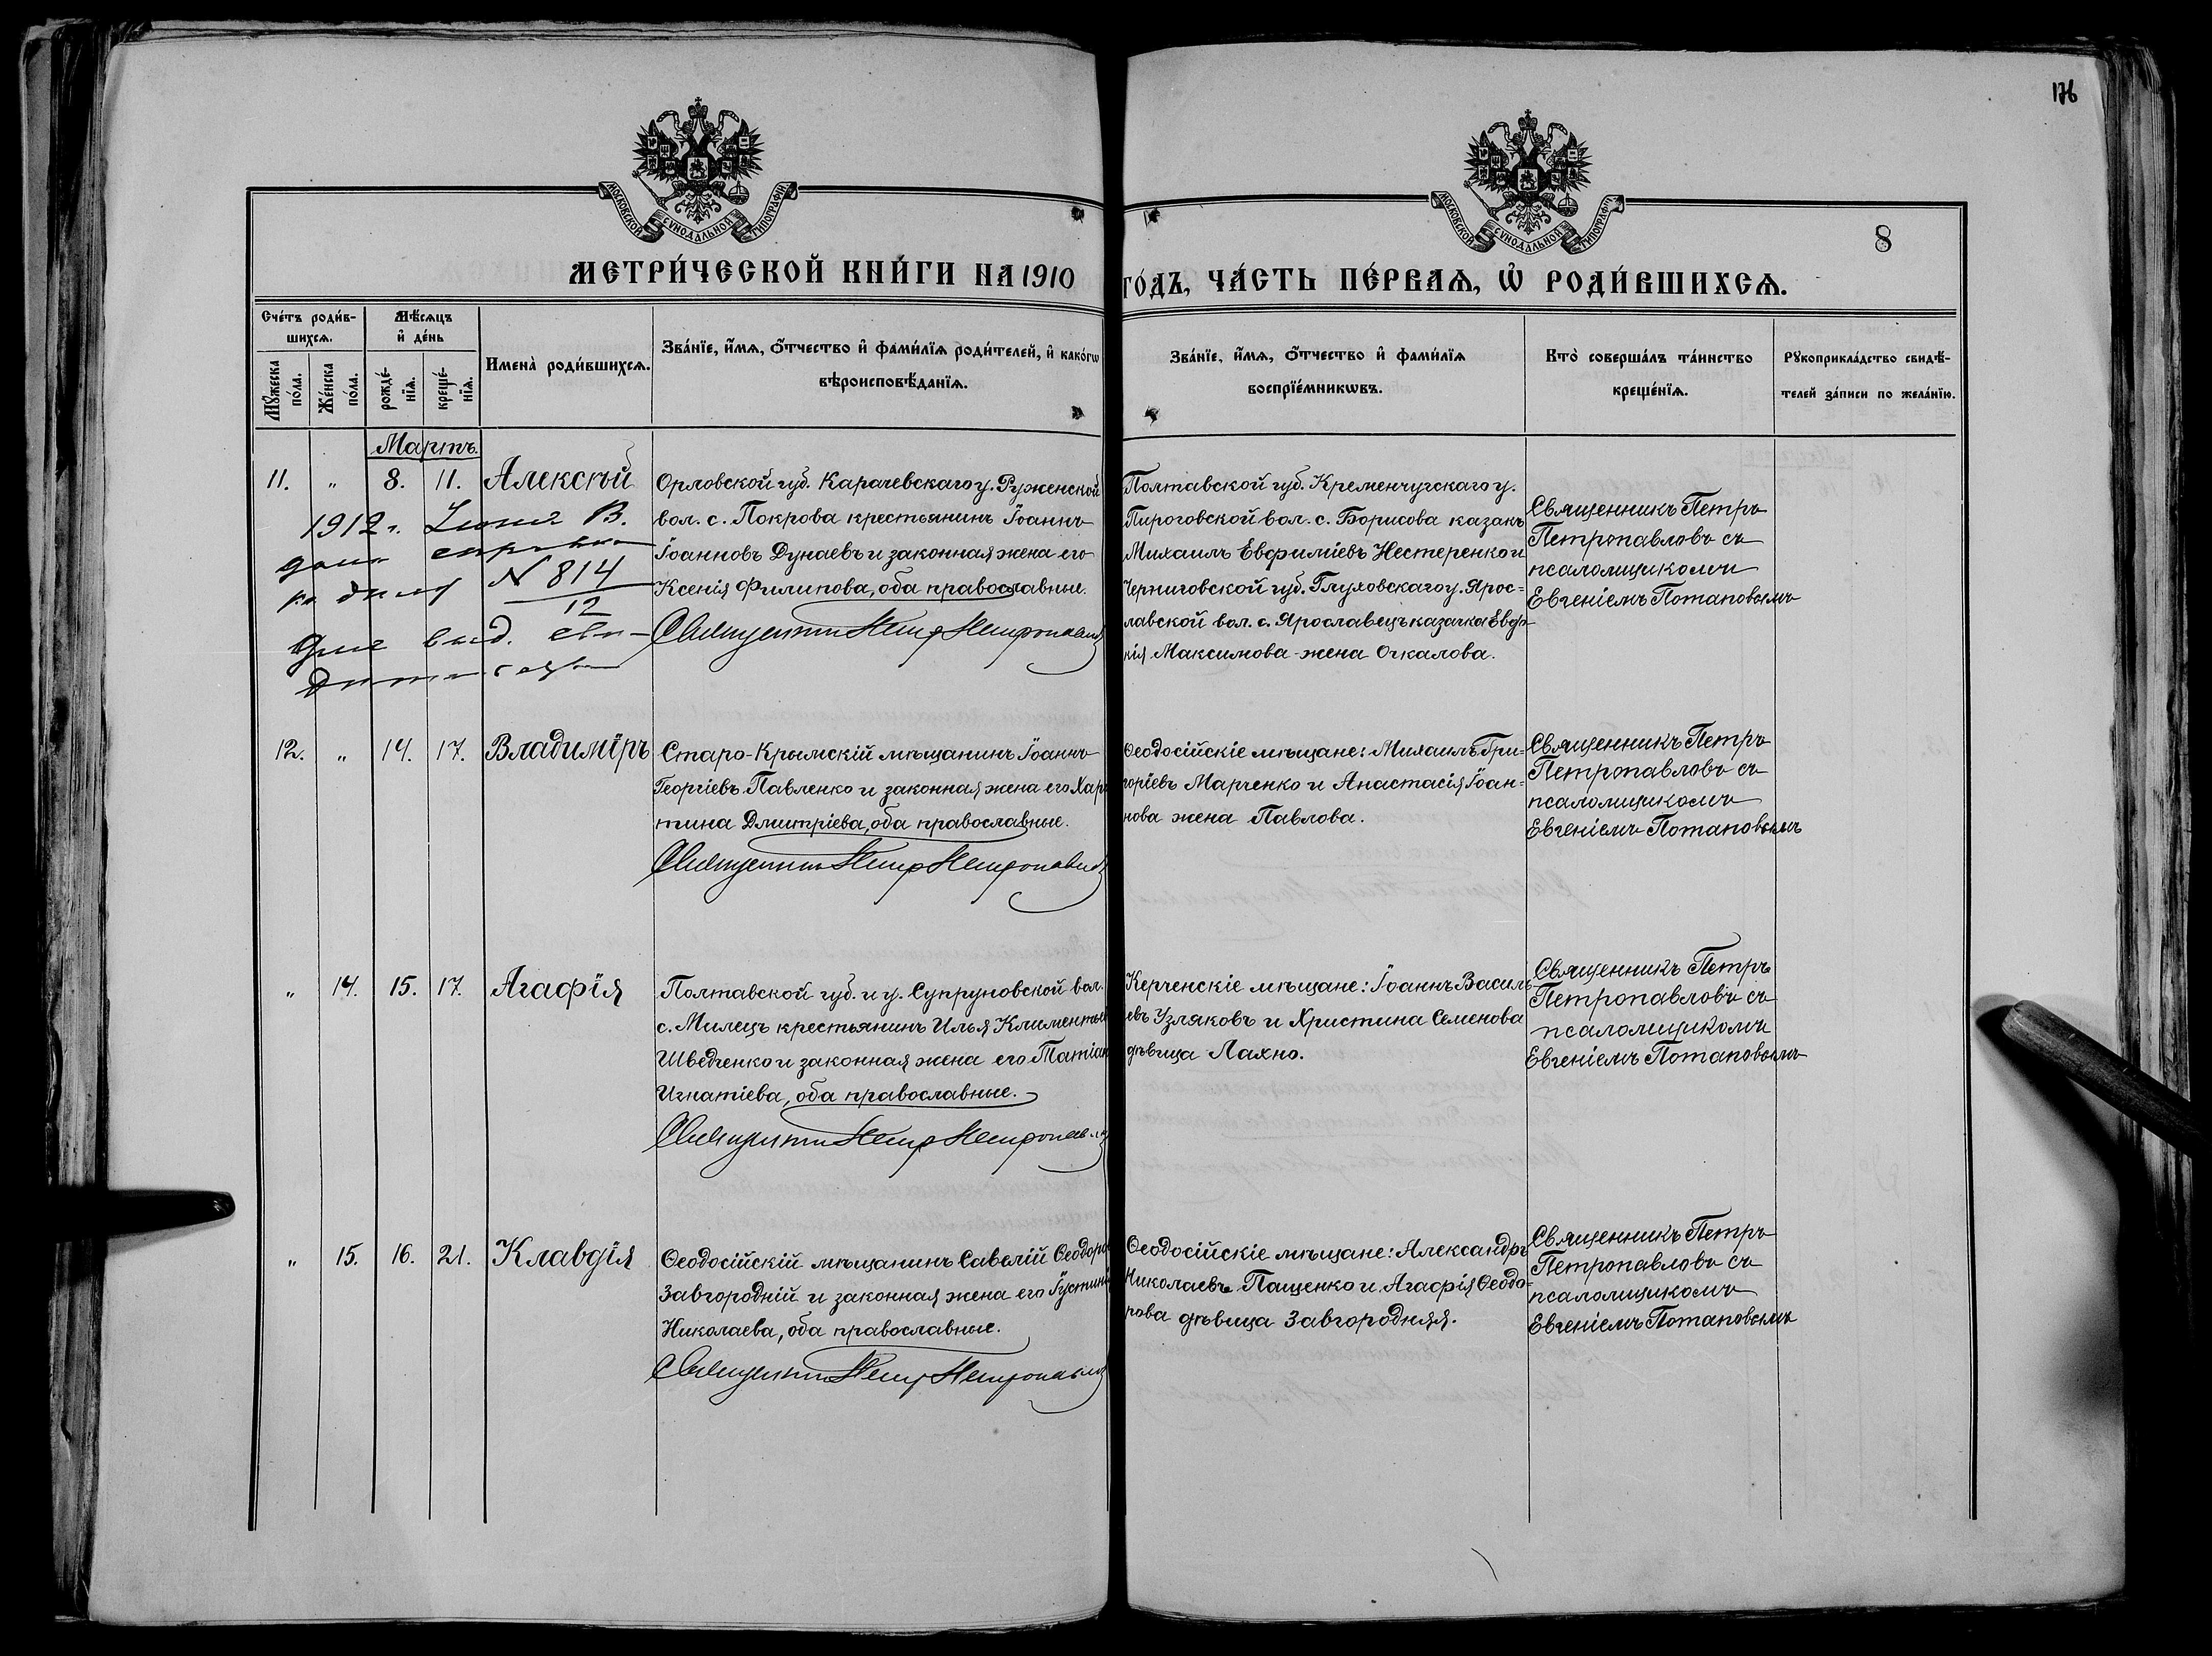 176
МОСКОВСКОЙ СУНОДАЛЬНОЙ ТИПОГРАФІИ
МОСКОВСКОЙ СУНОДАЛЬНОЙ ТИПОГРАФІИ
8
МЕТРИ́ЧЕСКОЙ КНИ́ГИ НА 1910
ГО́ДЪ, ЧА́СТЬ ПЕ́РВАѦ, Ѡ҆ РОДИ́ВШИХСѦ.
Сче́тъ роди́в-
шихсѧ.
Мꙋ́жеска
по́ла.
Же́нска
по́ла.
Мѣ́сѧцъ
и҆ де́нь
рожде́-
нїѧ.
креще́-
нїѧ.
Имена̀ роди́вшихсѧ.
Зва́нїе, и҆́мѧ, ѻ҆́тчество и҆ фами́лїѧ роди́телей, и҆ како́гѡ
вѣроисповѣ́данїѧ.
Зва́нїе, и҆́мѧ, ѻ҆́тчество и҆ фами́лїѧ
воспрїе́мникѡвъ.
Кто̀ соверша́лъ та́инство
креще́нїѧ.
Рꙋкоприкла́дство свидѣ́-
телей за́писи по жела́нїю.
Мартъ.
11. " 8. 11. Алексѣй
Орловской губ. Карачевскаго у. Руженской
вол. с. Покрова крестьянинъ Іоаннъ
Іоанновъ Дунаевъ и законная жена его
Ксенія Филипова, оба православные.
Священникъ Петръ Петропавловъ
1912 г.
В.
дана справка
№ 814
12
выд.
Полтавской губ. Кременчугскаго у.
Пироговской вол. с. Борисова казакъ
Михаилъ Евфиміевъ Нестеренко и
Черниговской губ. Глуховскаго у. Ярос=
лавской вол. с. Ярославецъ казачка Евдо-
кія Максимова жена Очкалова.
Священникъ Петръ
Петропавловъ съ
псаломщикомъ
Евгеніемъ Потаповымъ
12. " 14. 17. Владиміръ
Старо-Крымскій мѣщанинъ Іоаннъ
Георгіевъ Павленко и законная жена его Хари
тина Дмитріева, оба православные.
Священникъ Петръ Петропавловъ
Ѳеодосійскіе мѣщане: Михаилъ Гри=
горіевъ Марченко и Анастасія Іоан=
нова жена Павлова.
Священникъ Петръ
Петропавловъ съ
псаломщикомъ
Евгеніемъ Потаповымъ
" 14. 15. 17. Агафія
Полтавской губ. и у. Супруновской вол.
с. Милецъ крестьянинъ Илья Климентьев
Шведченко и законная жена его Татіан
Игнатіева, оба православные.
Священникъ Петръ Петропавловъ
Керченскіе мѣщане: Іоаннъ Василь
евъ Узляковъ и Христина Семенова
дѣвица Лахно.
Священникъ Петръ
Петропавловъ съ
псаломщикомъ
Евгеніемъ Потаповымъ
" 15. 16. 21. Клавдія
Ѳеодосійскій мѣщанинъ Савелій Ѳеодоро
Завгородній и законная жена его Іустині
Николаева, оба православные.
Священникъ Петръ Петропавловъ
Ѳеодосійскіе мѣщане: Александръ
Николаевъ Пащенко и Агафія Ѳеодо=
рова дѣвица Завгородняя.
Священникъ Петръ
Петропавловъ съ
псаломщикомъ
Евгеніемъ Потаповымъ